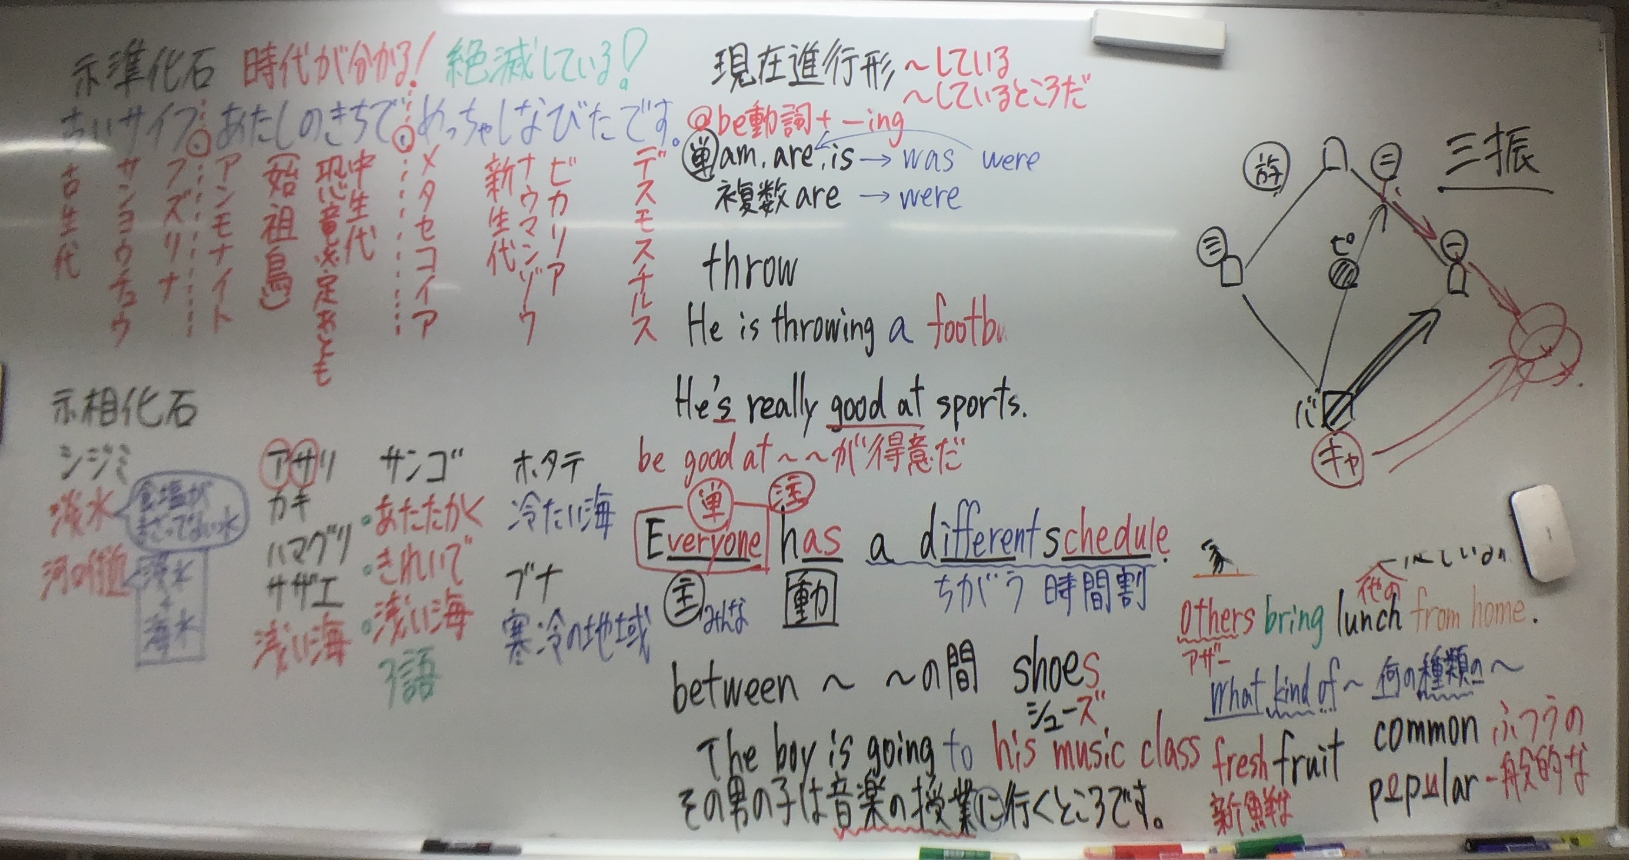 示準化石 時代が分かる! 絶滅している!
ちぃサイフ。あたしのきちで。めっちゃしなびたです。
古生代
サンヨウチュウ
フズリナ
アンモナイト
(始祖鳥)
恐竜
中生代
メタセコイア
新生代
ナウマンゾウ
ビカリア
デスモスチルス
示相化石
シジミ
淡水
食塩が
まざってない水
河の
淡水
+
海水
アサリ
カキ
ハマグリ
サザエ
浅い海
サンゴ
・あたたかく
・きれいで
・浅い海
3語
ホタテ
冷たい海
ブナ
寒冷の地域
現在進行形 〜している
〜しているところだ
@be動詞+ -ing
単 am, are, is → was were
複数 are → were
throw
He is throwing a footb
He's really good at sports.
be good at 〜 〜が得意だ
単 活
Everyone has a different schedule.
主 みんな 動 ちがう 時間割
between 〜 〜の間 shoes
シューズ
The boy is going to his music class
その男の子は音楽の授業に行くところです。
三振
二
三
ピ
一
バ
キャ
家
他の
others bring lunch from home.
アザー
What kind of 〜 何の種類の〜
fresh fruit
新鮮な
common ふつうの
popular 一般的な